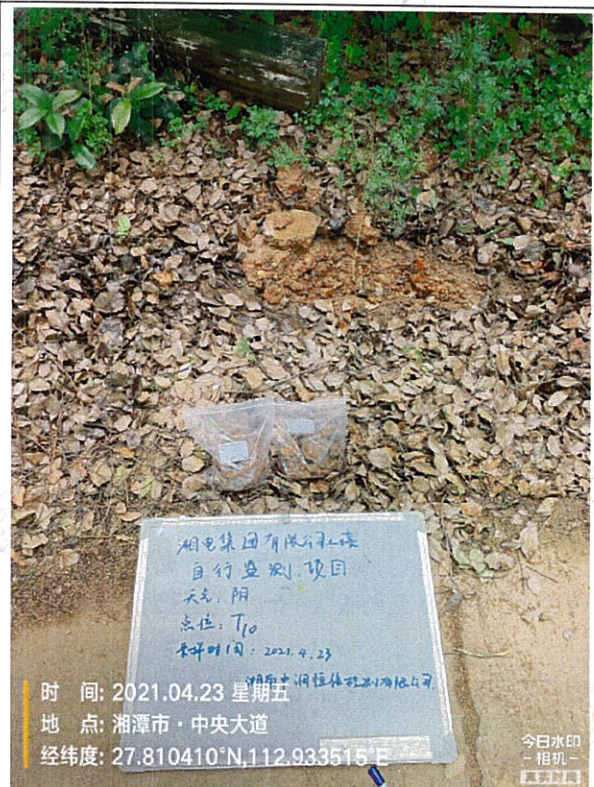 湘电集团有限公司土壤
自行监测项目
天气: 阴
点位: T10
采样时间: 2021.4.23
湖南中润恒信检测有限公司
时 间: 2021.04.23 星期五
地 点: 湘潭市·中央大道
经纬度: 27.810410°N,112.933515°E
今日水印
-相机-
真实时间